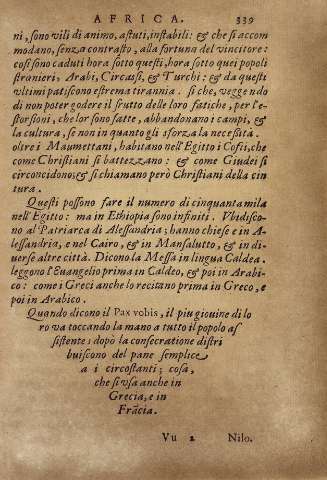 AFRICA. 339
ni, sono vili di animo, astuti, instabili: & che si accom
modano, senza contrasto, alla fortuna del vincitore:
cosi sono caduti hora sotto questi, hora sotto quei popoli
stranieri, Arabi, Circassi, & Turchi: & da questi
vltimi patiscono estrema tirannia. si che, veggendo
di non poter godere il frutto delle loro fatiche, per l'e-
storsioni, che lor sono fatte, abbandonano i campi, &
la cultura, se non in quanto gli sforza la necessità.
oltre i Maumettani, habitano nell'Egitto i Cofti, che
come Christiani si battezzano: & come Giudei si
circoncidono; & si chiamano però Christiani della cin
tura.
Questi possono fare il numero di cinquanta mila
nell'Egitto: ma in Ethiopia sono infiniti. Vbidisco-
no al Patriarca di Alessandria; hanno chiese e in A-
lessandria, e nel Cairo, & in Mansalutto, & in di-
uerse altre città. Dicono la Messa in lingua Caldea.
leggono l'Euangelio prima in Caldeo, & poi in Arabi-
co: come i Greci anche lo recitano prima in Greco, e
poi in Arabico.
Quando dicono il Pax vobis, il piu giouine di lo
ro va toccando la mano a tutto il popolo as
sistente: dopò la consecratione distri
buiscono del pane semplice
a i circostanti; cosa,
che si vsa anche in
Grecia, e in
Frãcia.
Vu 2 Nilo.